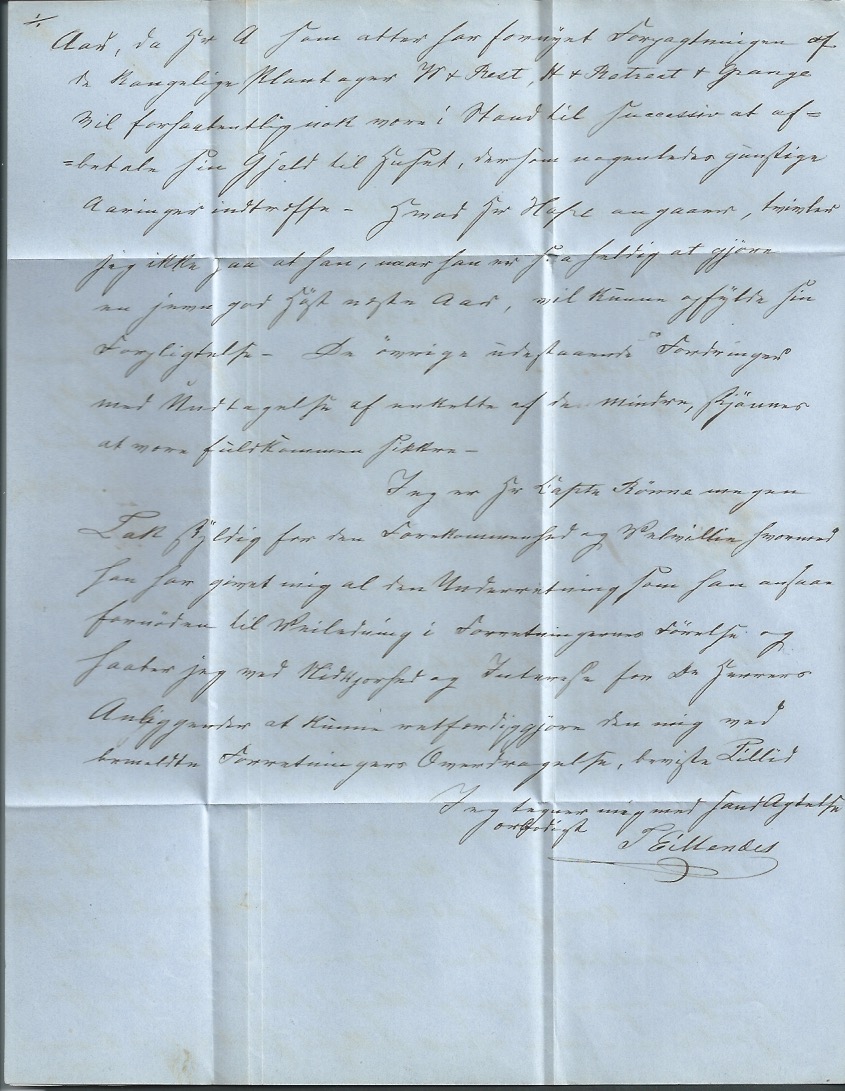 Aar, da Hr A som atter har fornyet Forpagtningen af
de Kongelige Plantager W & Rest, H & Retreat & Grange
vil forhaabentlig nok være i Stand til successiv at af=
=betale sin Gjeld til Huset, dersom nogenledes gunstige
Aaringer indtræffe - Hvad Hr angaaer, tvivler
jeg ikke paa at han, naar han er saa heldig at gjöre
en jevn god Höst næste Aar, vil kunne opfylde sin
Forpligtelse - De övrige udestaaende Fordringer
med Undtagelse af enkelte af de mindre, skjönnes
at være fuldkommen sikkre -
Jeg er Hr Captn Rönne megen
Tak skyldig for den Forekommenhed og Velvillie hvormed
han har givet mig al den Underretning som han ansaae
fornöden til Veiledning i Forretningernes Förelse og
haaber jeg ved Nidkjærhed og Interesse for De Herrers
Anliggender at kunne retfærdiggjöre den mig ved
bemeldte Forretningers Overdragelse, beviste Tillid
Jeg tegner mig med sand Agtelse
ærbödigst